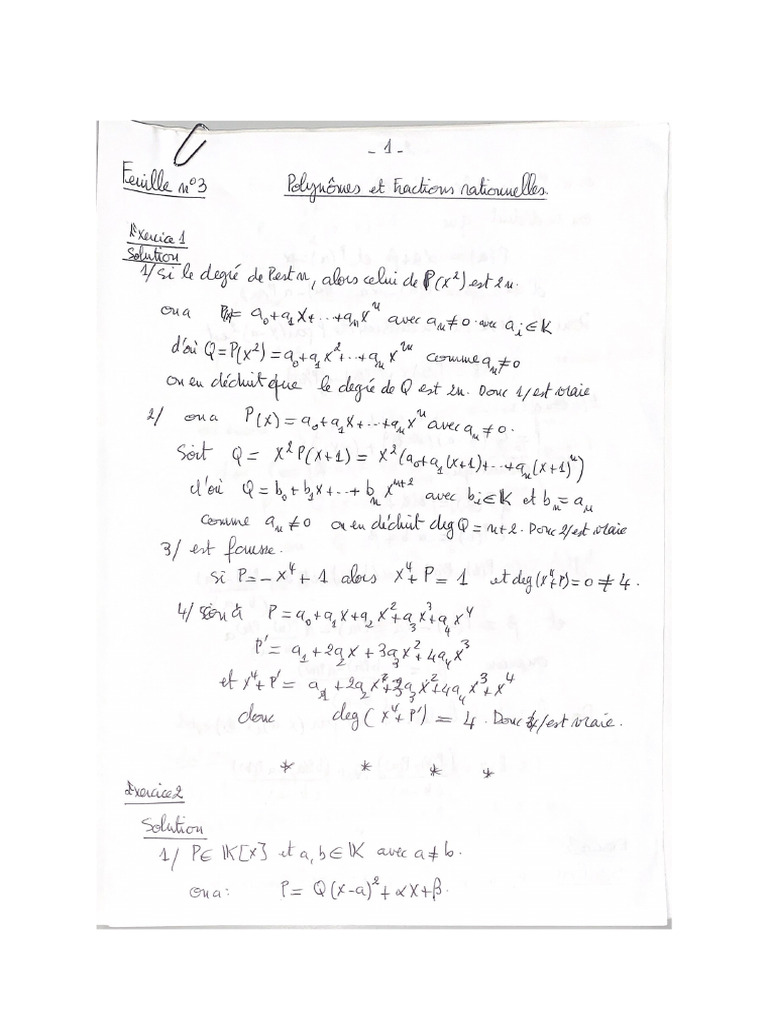 - 1 -
Feuille n°3 Polynômes et Fractions rationnelles.
Exercice 1
Solution
1/ Si le degré de P est n, alors celui de P(X²) est 2n.
on a P = a₀+a₁X+...+aₙXⁿ avec aₙ≠0 avec aᵢ∈K
d'où Q=P(X²)=a₀+a₁X²+...+aₙX²ⁿ comme aₙ≠0
on en déduit que le degré de Q est 2n. Donc 1/ est vraie
2/ on a P(X)=a₀+a₁X+...+aₙXⁿ avec aₙ≠0.
Soit Q = X²P(X+1) = X²(a₀+a₁(X+1)+...+aₙ(X+1)ⁿ)
d'où Q=b₀+b₁X+...+bₙXⁿ⁺² avec bᵢ∈K et bₙ=aₙ
comme aₙ≠0 on en déduit deg Q = n+2. Donc 2/ est vraie
3/ est fausse.
si P=-X⁴+1 alors X⁴+P=1 et deg(X⁴+P)=0≠4.
4/ si on a P=a₀+a₁X+a₂X²+a₃X³+a₄X⁴
P'=a₁+2a₂X+3a₃X²+4a₄X³
et X⁴+P'= a₁+2a₂X+3a₃X²+4a₄X³+X⁴
donc deg(X⁴+P') = 4. Donc 4/ est vraie.
* * * *
Exercice 2
Solution
1/ P∈K[X] et a,b∈K avec a≠b.
on a: P= Q(X-a)²+αX+β.